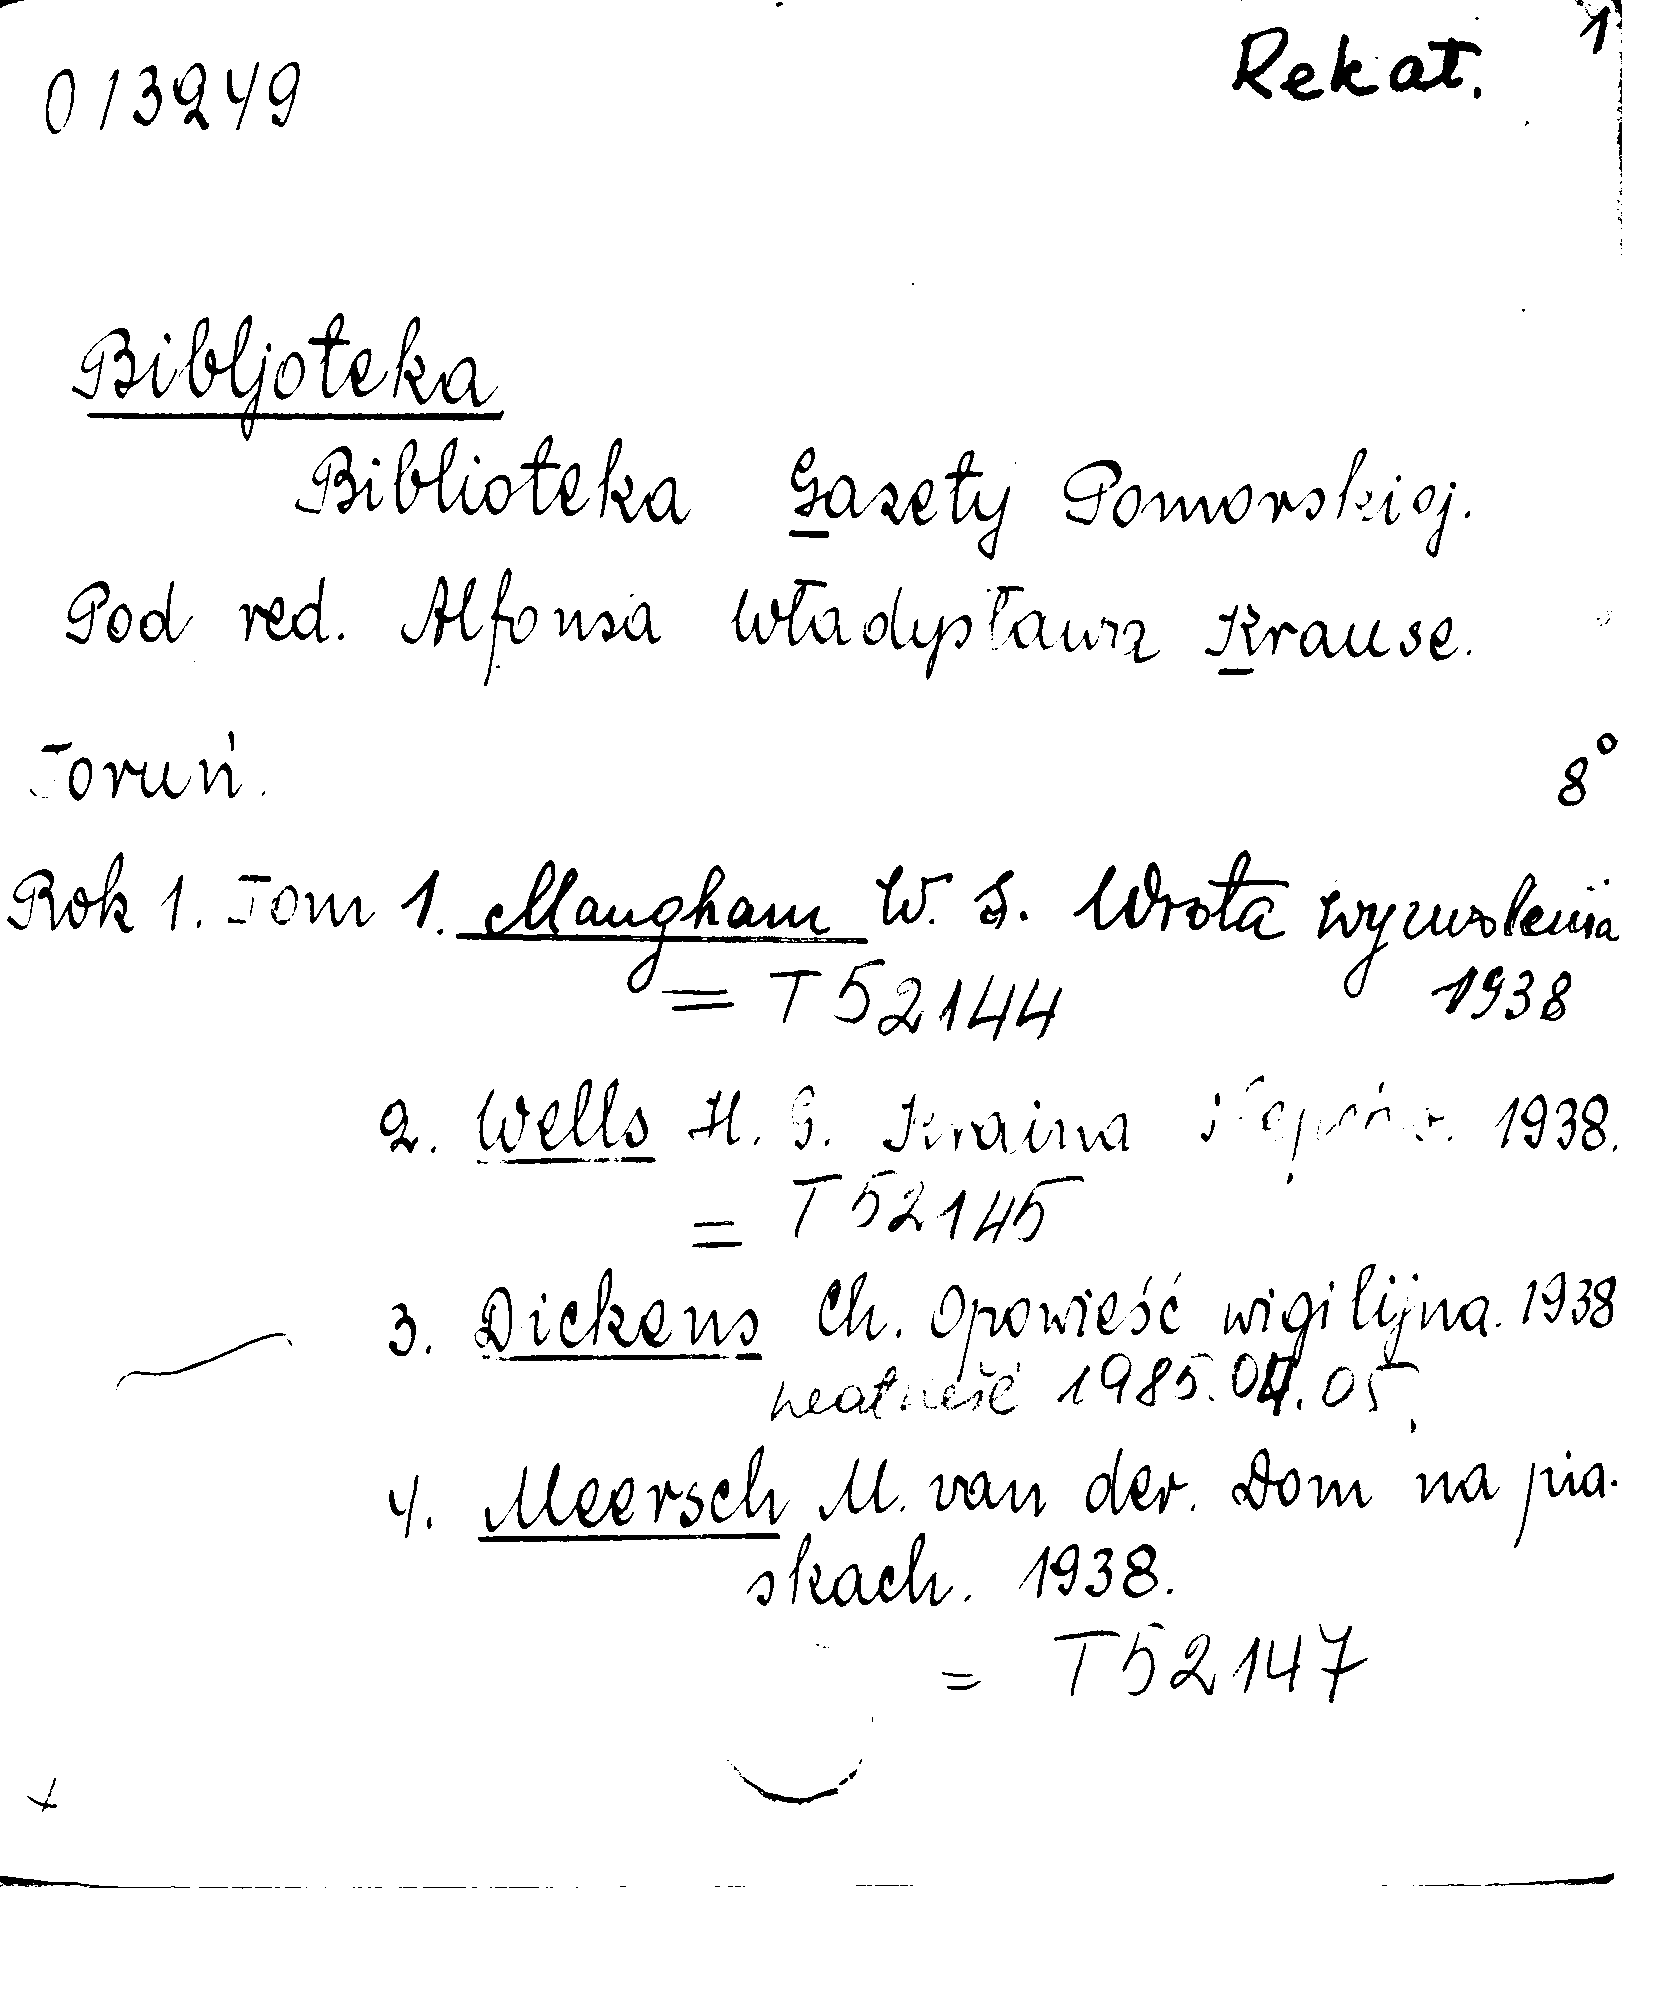 013249
Rekat. 1
Bibljoteka
Biblioteka Gazety Pomorskiej.
Pod red. Alfonsa Władysława Krause.
Toruń. 8°
Rok 1. Tom 1. Maugham W. S. Wrota wyzwolenia
= T52144 1938
2. Wells H. G. Kraina ślepców. 1938.
= T52145
3. Dickens Ch. Opowieść wigilijna. 1938
1985.04.05.
4. Meersch M. van der. Dom na pia-
skach. 1938.
= T52147